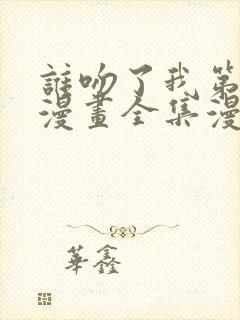 誰吻了我第
漫畫全集漫
華鑫